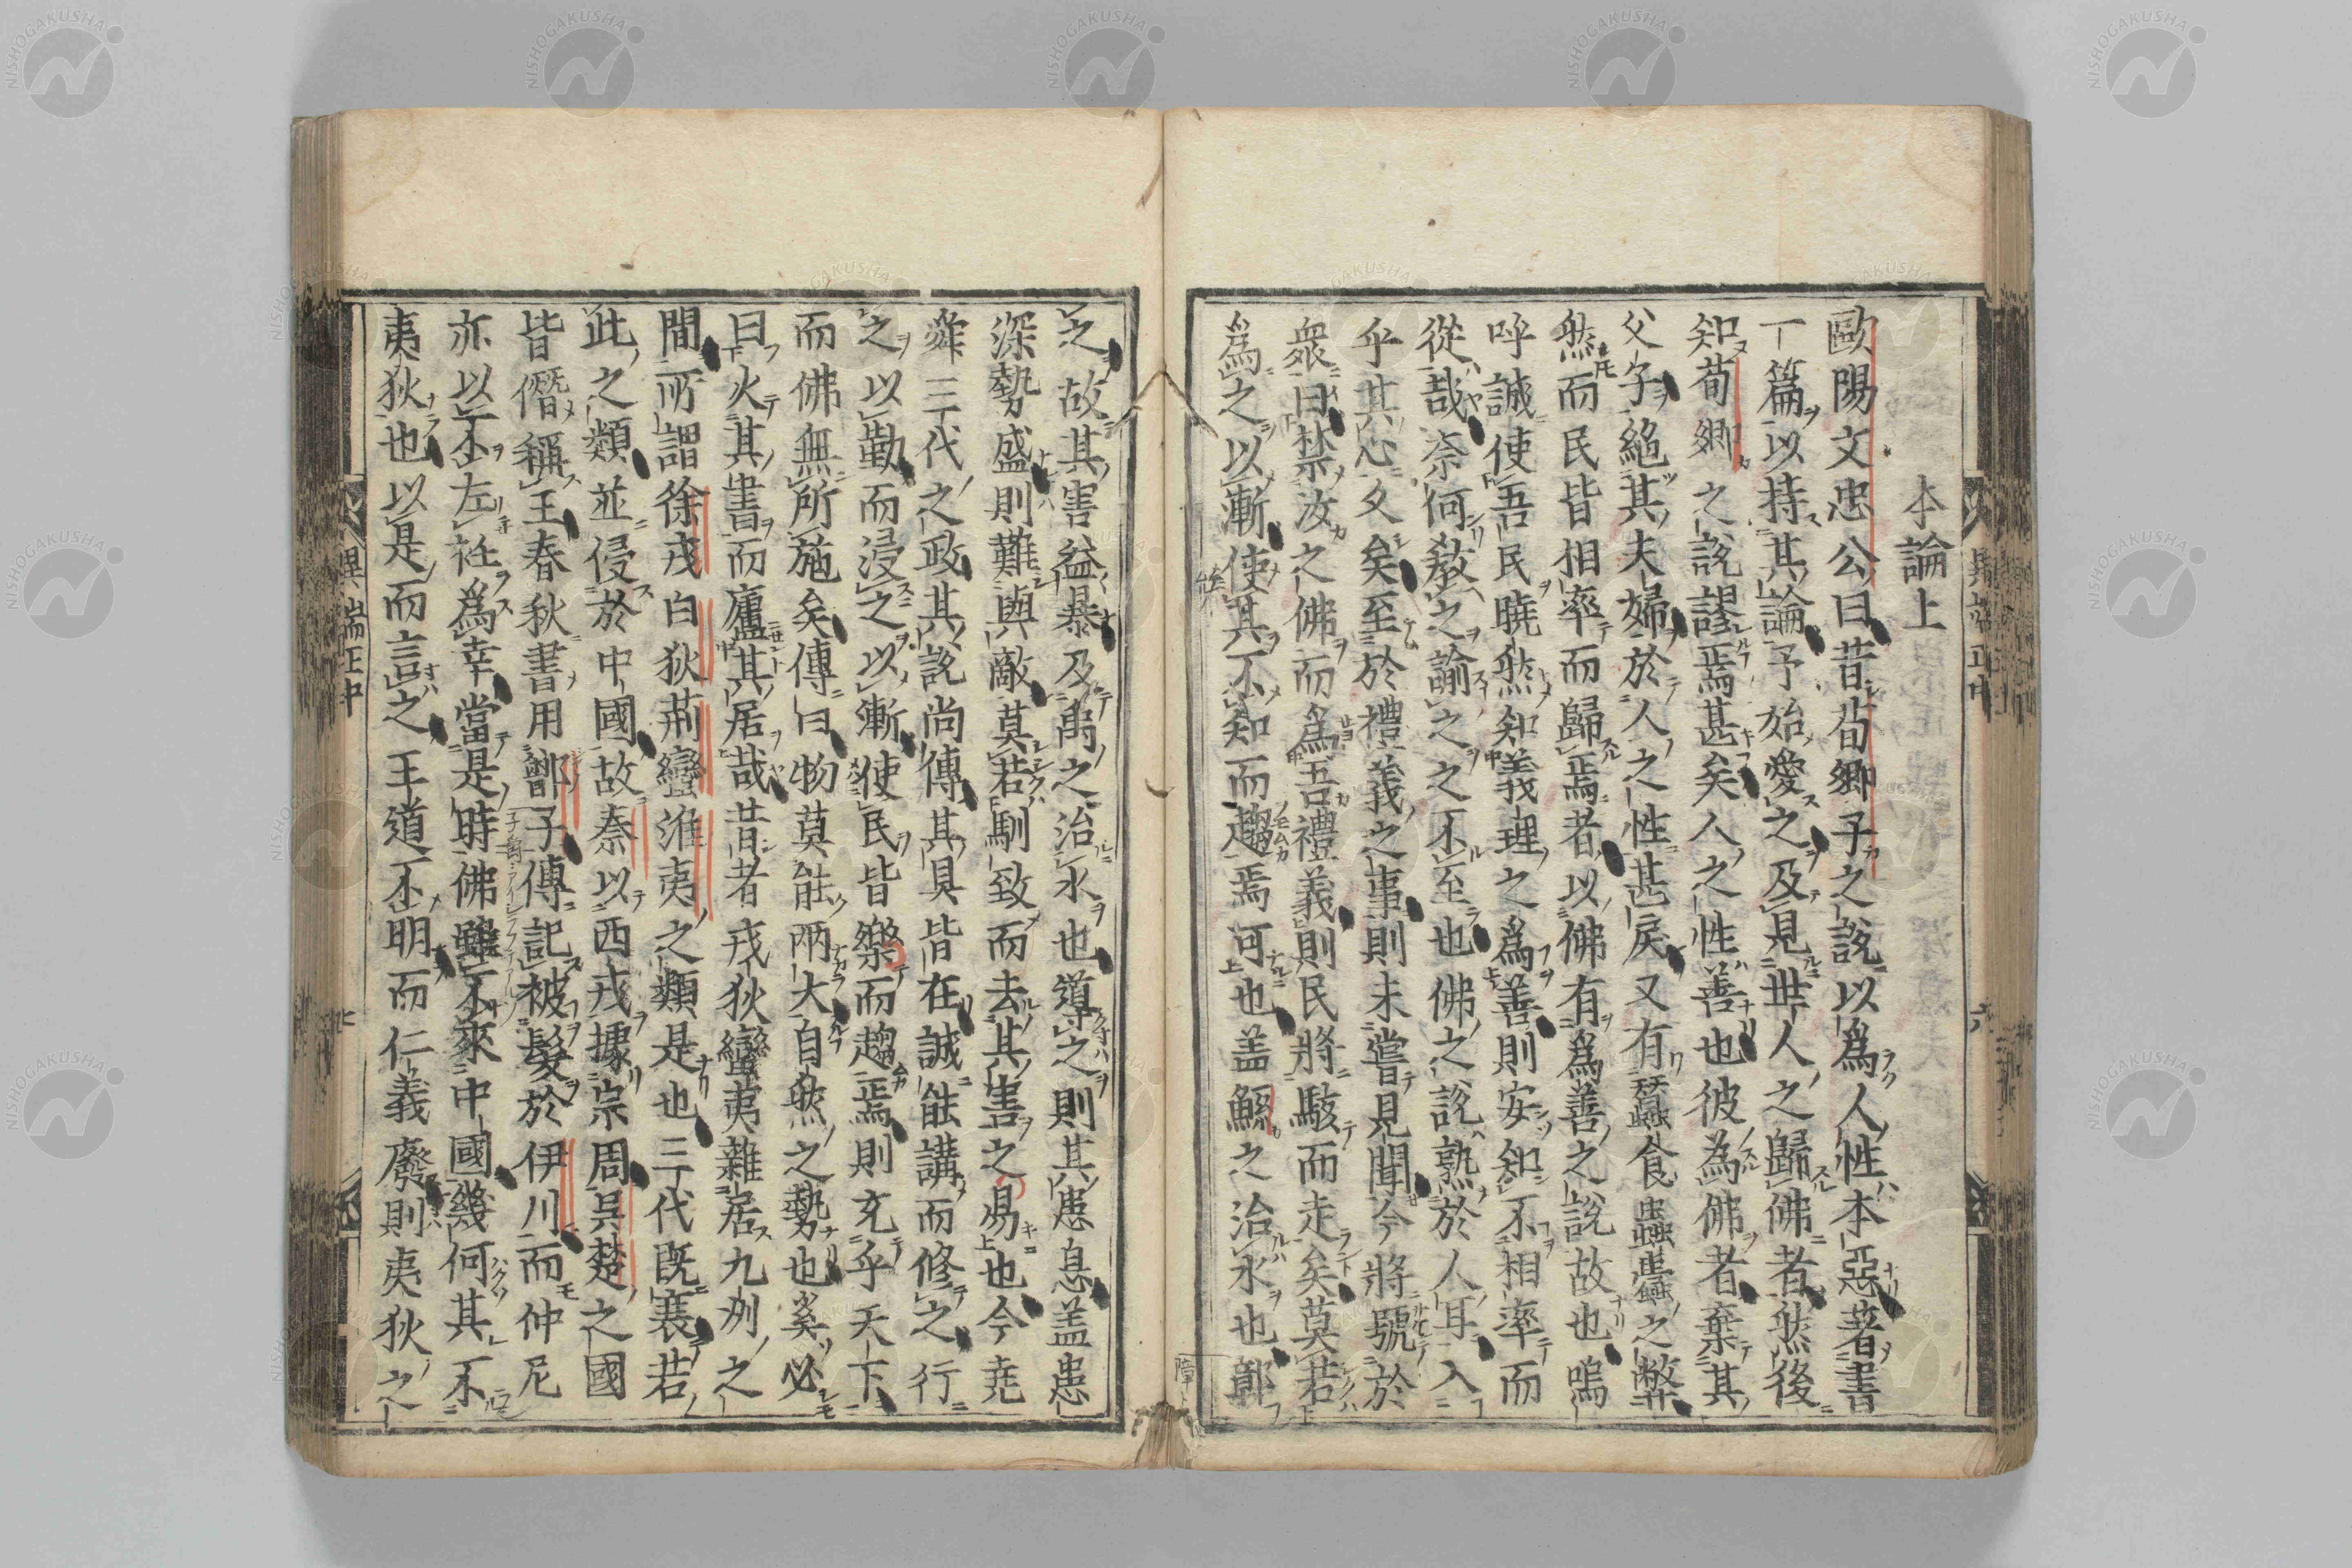 本論上
歐陽文忠公曰昔荀卿子之說以爲人性本惡著書
一篇以持其論予始愛之及見世人之歸佛者然後
知荀卿之說謬焉甚矣人之性善也彼為佛者棄其
父子絕其夫婦於人之性甚戾又有蠶食蟲蠹之弊
然而民皆相率而歸焉者以佛有爲善之說故也嗚
呼誠使吾民曉然知義理之爲善則安知不相率而
從哉奈何敎之諭之之不至也佛之說熟於人耳入
乎其心久矣至於禮義之事則未嘗見聞今將號於
衆曰禁汝之佛而爲吾禮義則民將駭而走矣莫若
爲之以漸使其不知而趨焉可也盖鯀之治水也鄣
之故其害益暴及禹之治水也導之則其患息盖患
深勢盛則難與敵莫若馴致而去其害之易也今堯
舜三代之政其說尚傳其具皆在誠能講而修之行
之以勤而浸之以漸使民皆樂而趨焉則充乎天下
而佛無所施矣傳曰物莫能兩大自然之勢也奚必
曰火其書而廬其居哉昔者戎狄蠻夷雜居九州之
間所謂徐戎白狄荊蠻淮夷之類是也三代既衰若
此之類並侵於中國故秦以西戎據宗周吳楚之國
皆僭稱王春秋書用鄫子傳記被髮於伊川而仲尼
亦以不左衽爲幸當是時佛雖不來中國幾何其不
夷狄也以是而言之王道不明而仁義廢則夷狄之
異端正中
七
異端正中
六